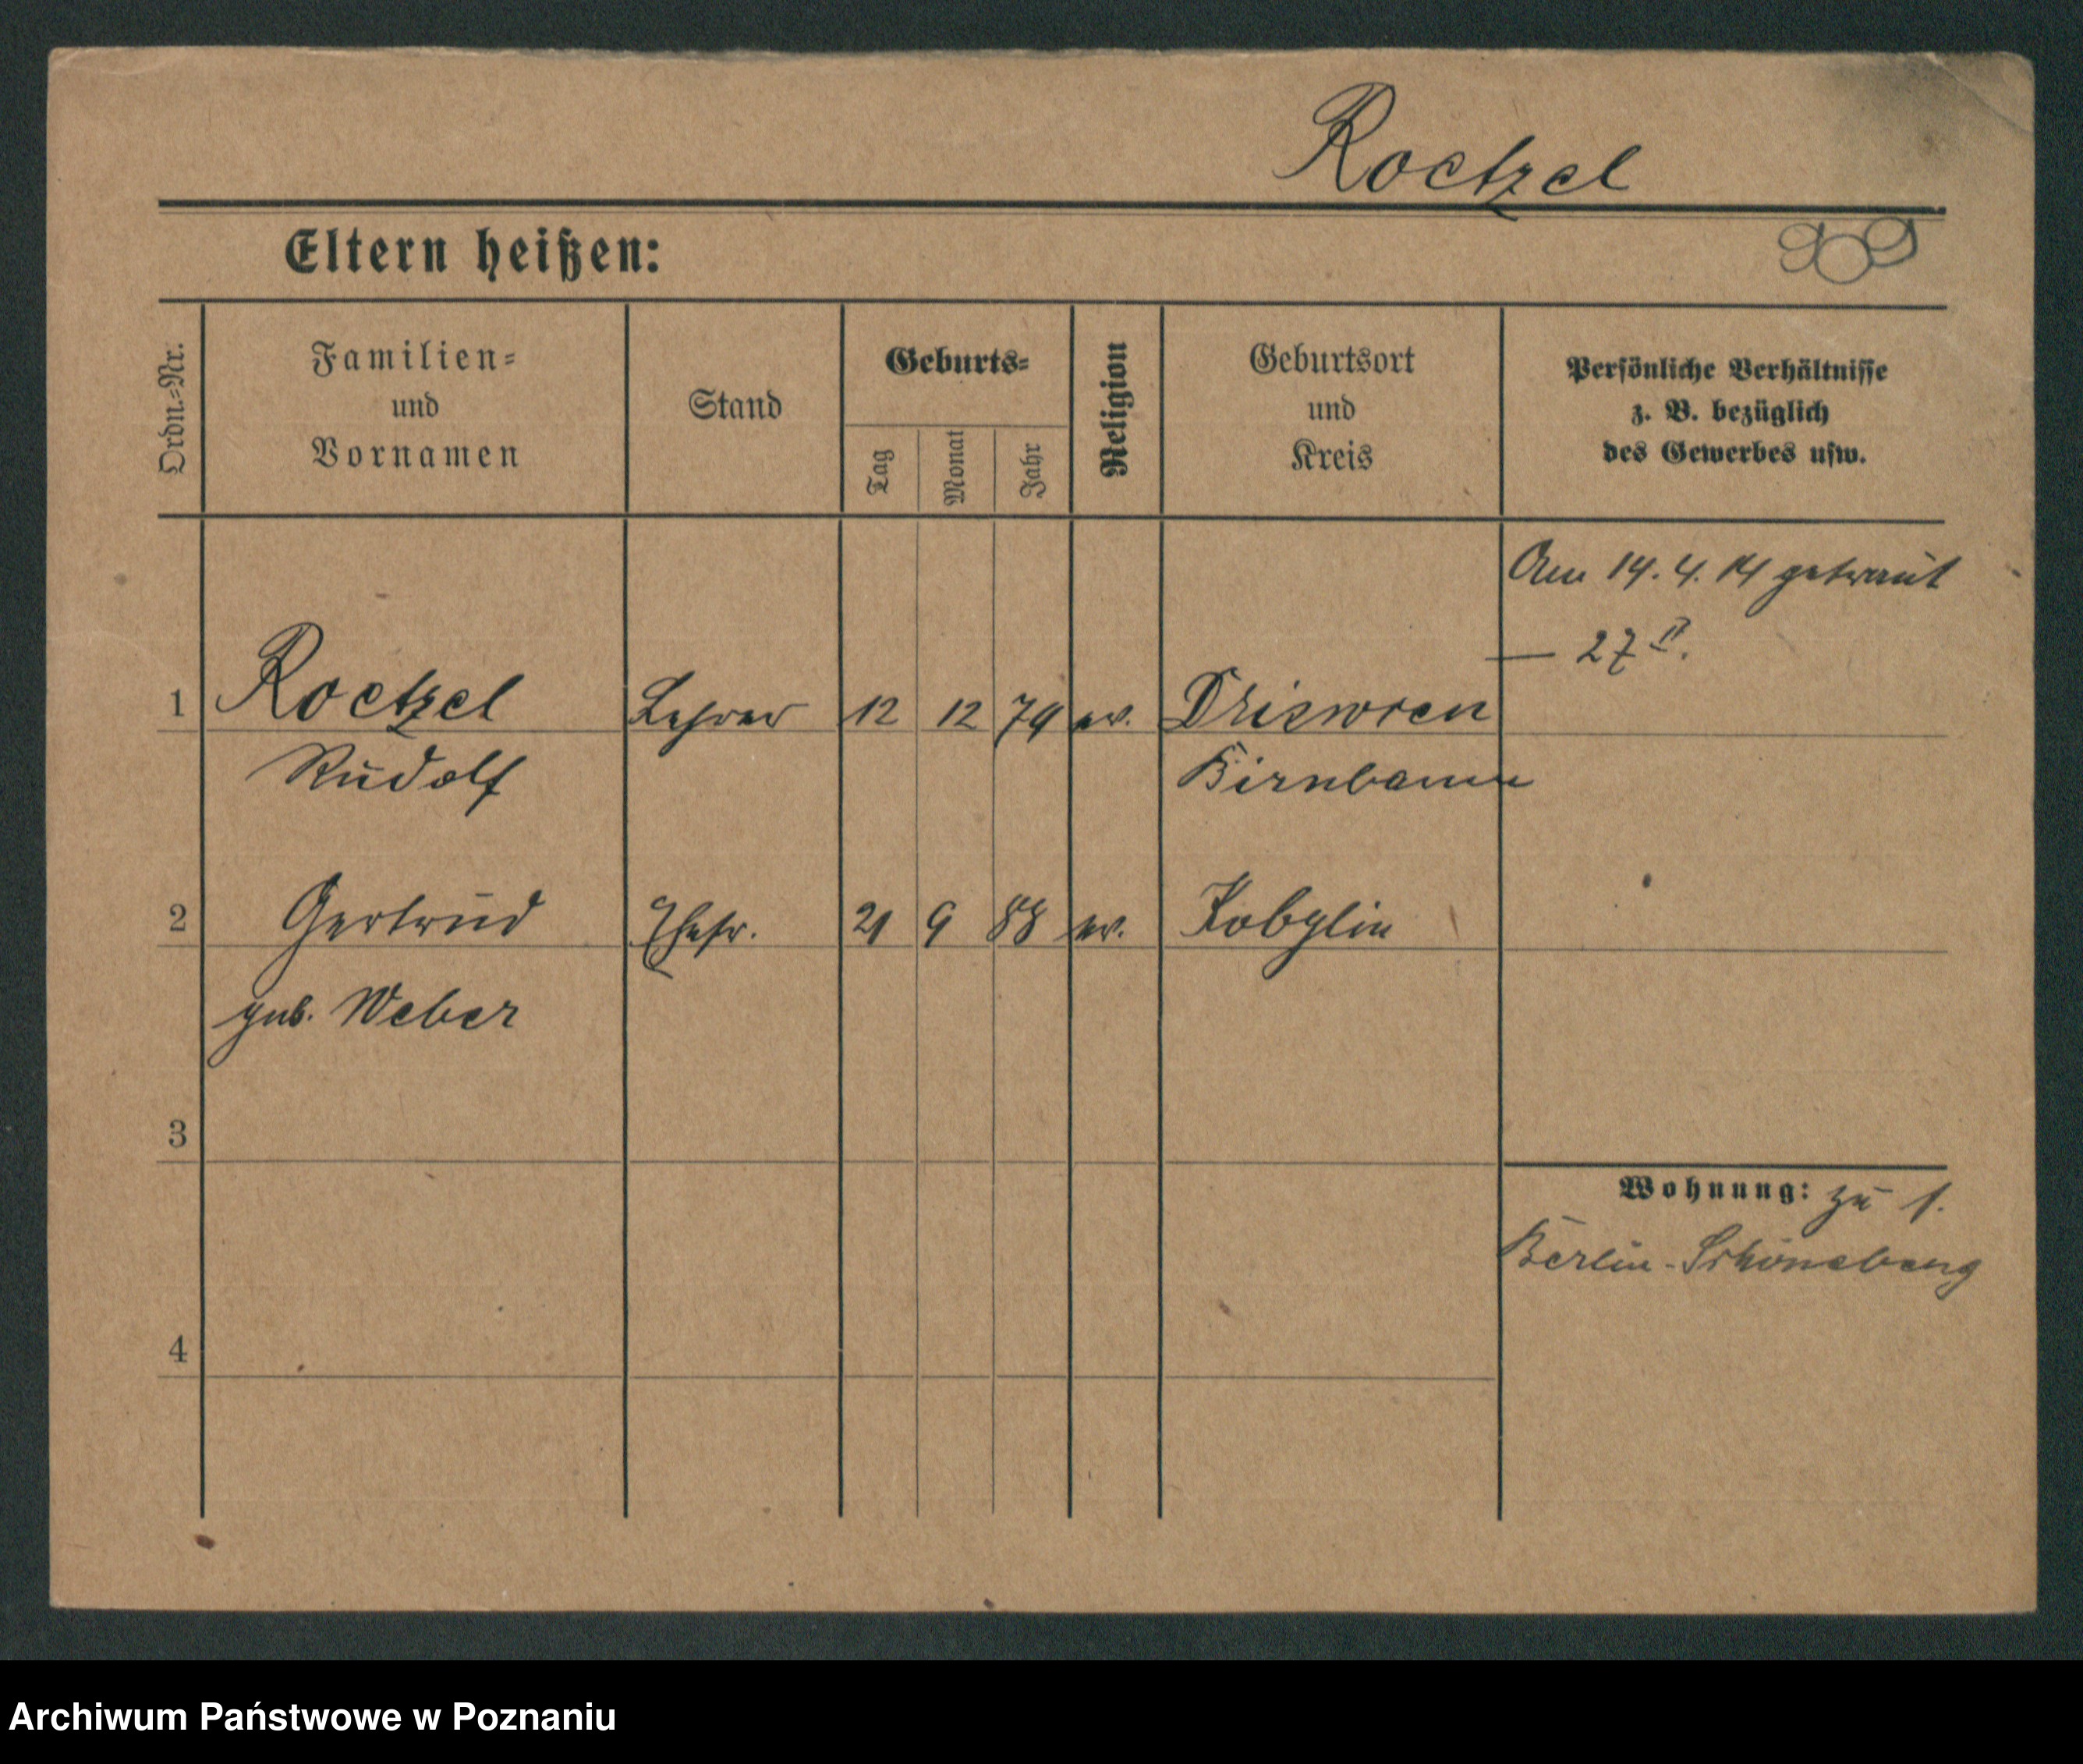 Roetzel
Eltern heißen:
Ordn.=Nr.
Familien=
und
Vornamen
Stand
Geburts=
Tag
Monat
Jahr
Religion
Geburtsort
und
Kreis
Persönliche Verhältnisse
z. B. bezüglich
des Gewerbes usw.
Am 14. 4. 14 getraut
— 27 II.
1 Roetzel Lehrer 12 12 79 ev.
Rudolf Birnbaum
2 Gertrud Ehefr. 21 9 88 ev. Kobylin
geb. Weber
3
Wohnung: zu 1.
Berlin-Schöneberg
4
Archiwum Państwowe w Poznaniu